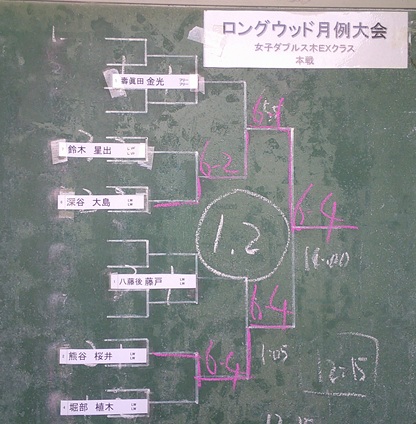 ロングウッド月例大会
女子ダブルス木EXクラス
本戦
金光
鈴木 星出
深谷 大島
八藤後 藤戸
熊谷 桜井
堀部 植木
6-2
6-4
1.2
6-4
6-4
1:05
12:15